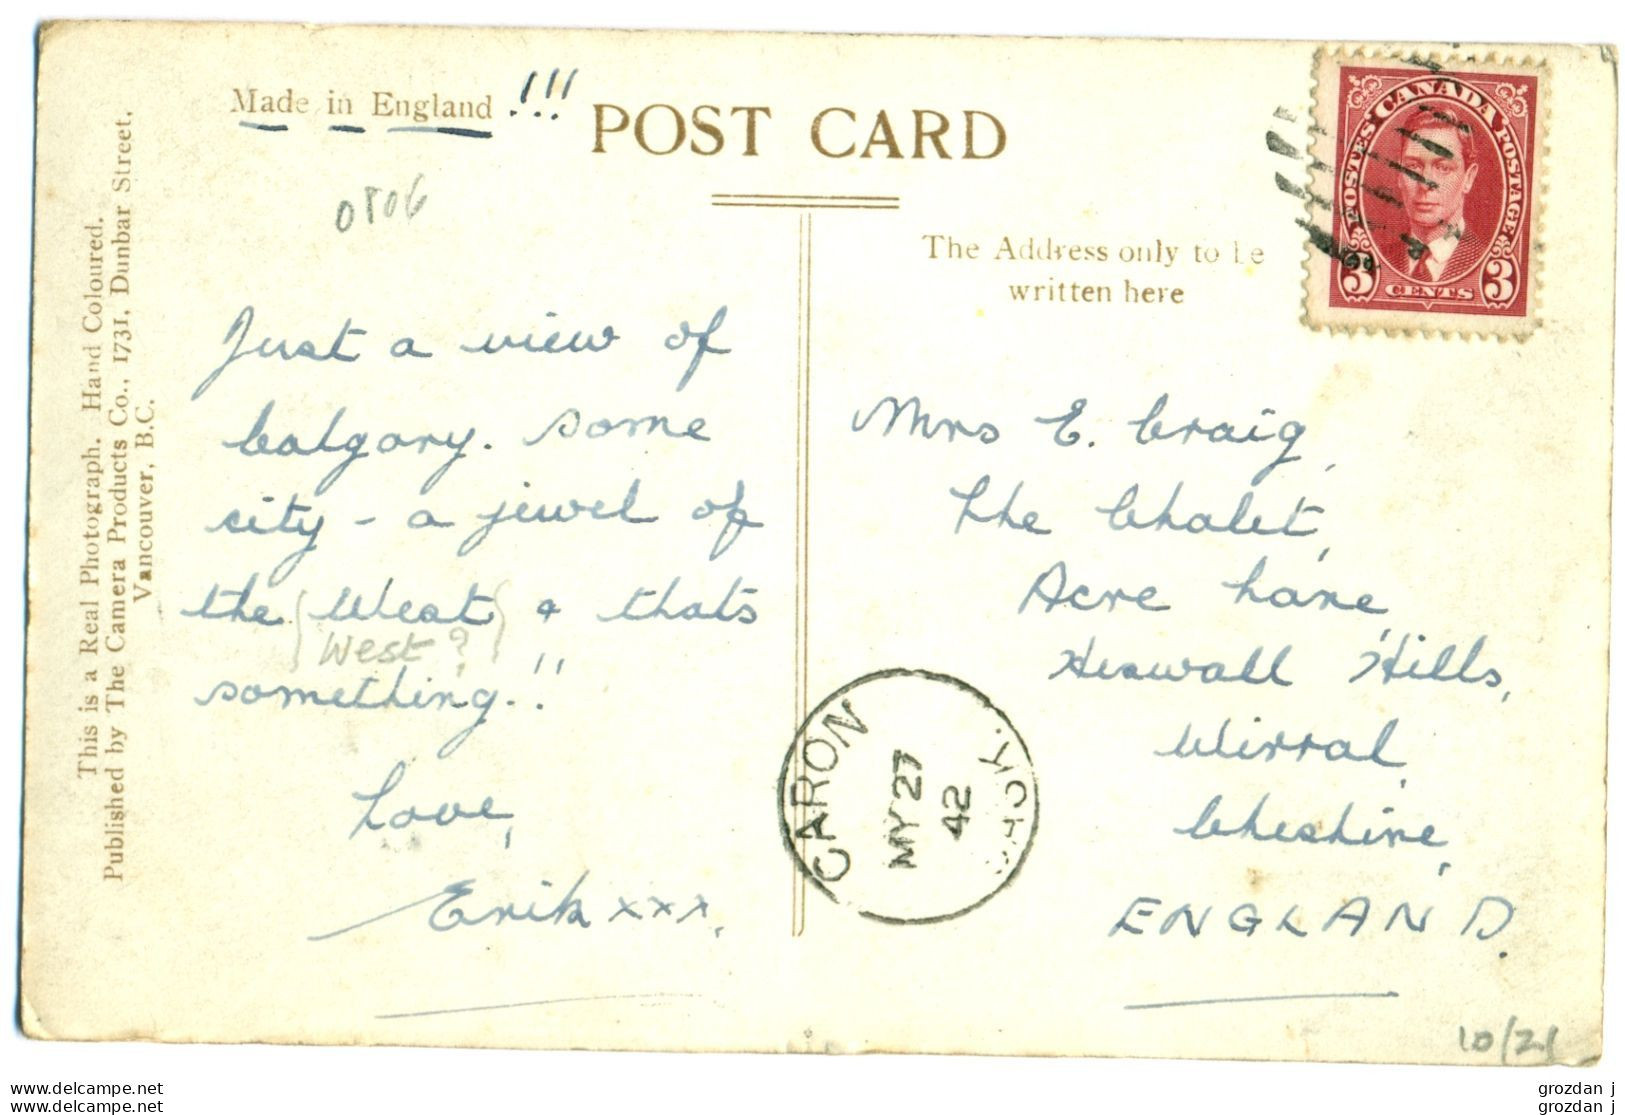 Made in England !!!
POST CARD
0806
The Address only to be
written here
POSTES CANADA POSTAGE
3 CENTS 3
This is a Real Photograph. Hand Coloured.
Published by The Camera Products Co., 1731, Dunbar Street.
Vancouver, B.C.
Just a view of
Calgary. Some
city - a jewel of
the West & thats
West?
something!!
Love,
Erik xxx.
Mrs E. Craig,
The Chalet,
Acre Lane,
Heswall Hills,
Wirral,
Cheshire,
ENGLAND.
CARON
MY 27
42
10/21
www.delcampe.net
www.delcampe.net
grozdan j
grozdan j